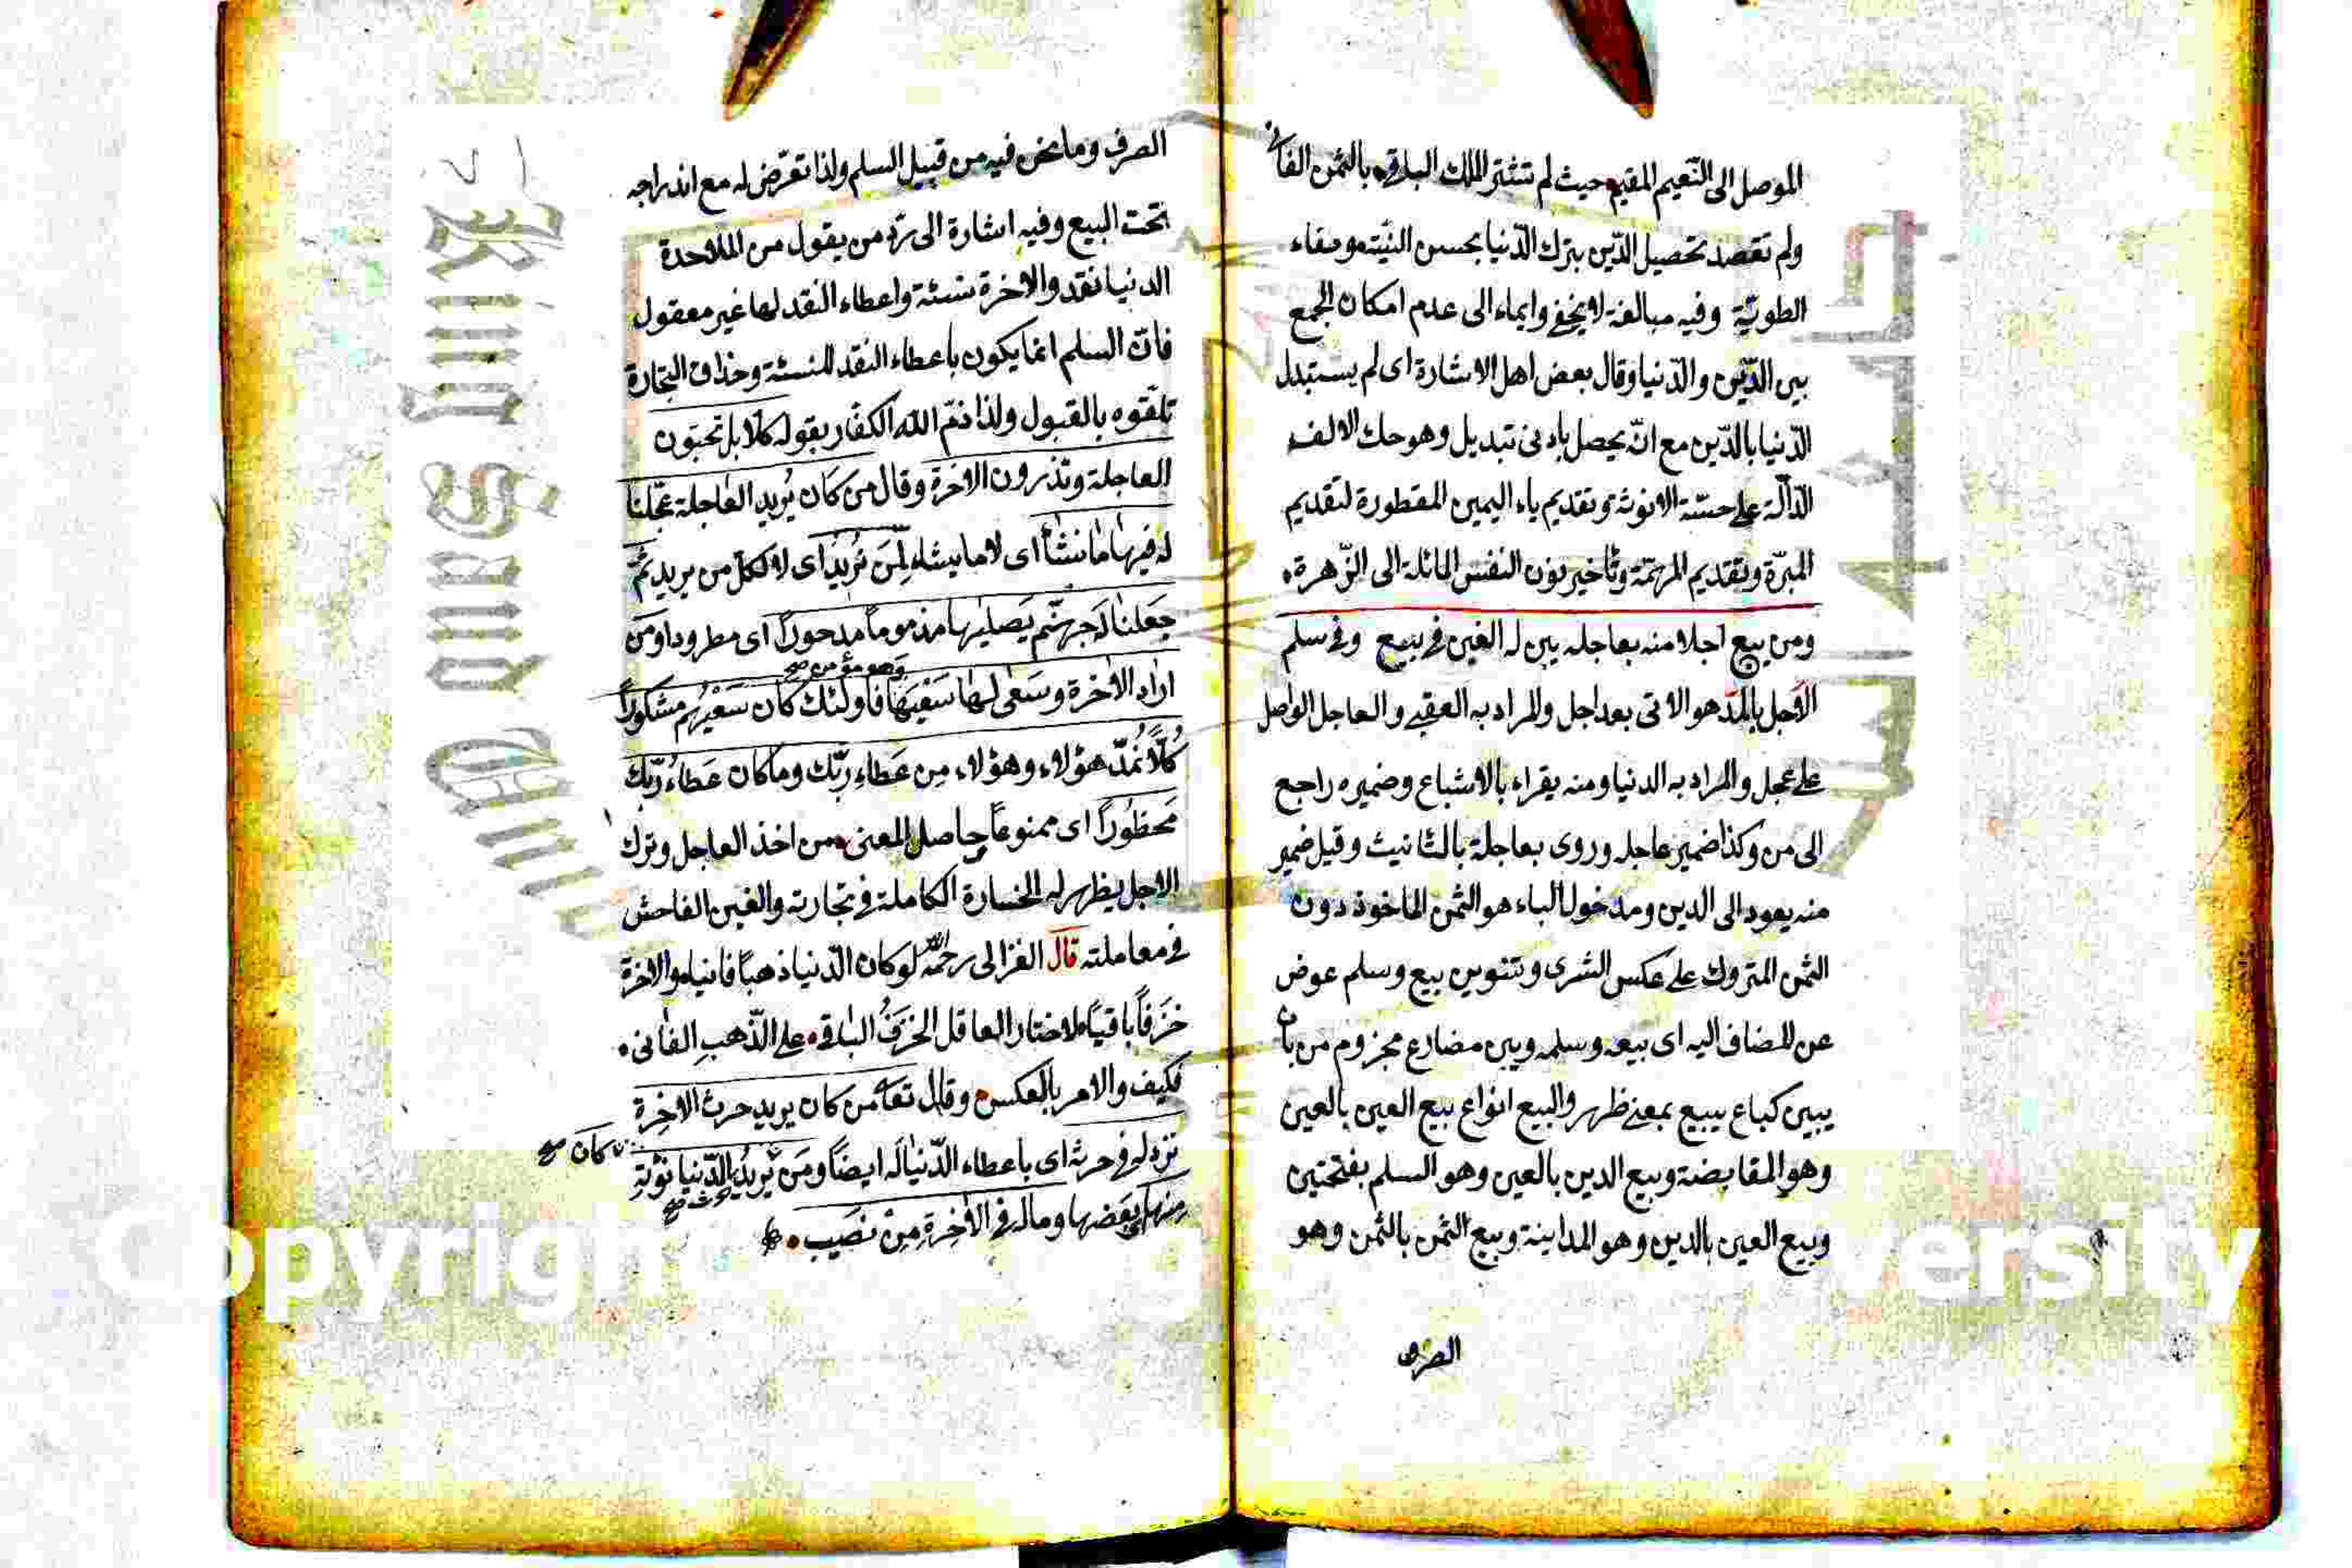 الموصل الى النّعيم المقيم حيث لم تشتر الملك الباقى بالثمن الفانى
ولم تقصد تحصيل الدّين بترك الدّنيا بحسن النيّته وصفاء
الطويّة وفيه مبالغة لا يخفى وايماء الى عدم امكان الجمع
بين الدّين والدّنيا وقال بعض اهل الاشارة اى لم يستبدل
الدّنيا بالدّين مع انّه يحصل بادنى تبديل وهو حك الالف
الدّالّة على حسّة الانوثة وتقديم ياء اليمين المقطورة لتقديم
المبرّة وتقديم المهمّة وتأخير نون النفس المائلة الى الزّهرة
ومن يبع اجلا منه بعاجله يبن له الغبن فى بيع وفى سلم
الآجل بالمدّ هو الاتى بعد اجل والمراد به العقبى والعاجل الواصل
على عجل والمراد به الدنيا ومنه يقراء بالاشباع وضميره راجع
الى من وكذا ضمير عاجله وروى بعاجلة بالتانيث وقيل ضمير
منه يعود الى الدين ومدخول الباء هو الثمن الماخوذ دون
الثمن المتروك على عكس الشرى وتنوين بيع وسلم عوض
عن المضاف اليه اى بيعه وسلمه ويبن مضارع مجزوم من بان
يبين كباع يبيع بمعنى ظهر والبيع انواع بيع العين بالعين
وهو المقايضة وبيع الدين بالعين وهو السلم بفتحتين
وبيع العين بالدين وهو المداينة وبيع الثمن بالثمن وهو
الصرف
الصرف وما نحن فيه من قبيل السلم ولذا تعرّض له مع اندراجه
تحت البيع وفيه اشارة الى ردّ من يقول من الملاحدة
الدنيا نقد والاخرة نسئة واعطاء النقد لها غير معقول
فانّ السلم انما يكون باعطاء النقد للنسئة وحذاق التجارة
تلقّوه بالقبول ولذا ذمّ الله الكفّار بقوله كلا بل تحبّون
العاجلة وتذرون الاخرة وقال من كان يُريد العاجلة عجّلنا
له فيها ما نشأ اى لا ما يشاء لِمَن نُريدُ اى لا لكل من يريد ثمّ
جَعَلنا لَه جهنّم يَصليها مذموماً مدحوراً اى مطرودا ومَن
وهو مؤمن صح
اراد الاخرة وسَعى لها سَعْيَهَا فاولئك كان سَعْيُهُم مشكوراً
كُلّاً نُمدّ هؤلاء وهؤلاء مِن عَطاءِ ربّك وما كان عَطاءُ ربّك
مَحظوراً اى ممنوعاً حاصل المعنى من اخذ العاجل وترك
الاجل يظهر له الخسارة الكاملة فى تجارته والغبن الفاحش
فى معاملته قال الغزالى رحمه الله لو كان الدّنيا ذهبًا فانيا والاخرة
خزفاً باقياً لاختار العاقل الخزَفَ الباقى على الذّهبِ الفانى
فكيف والامر بالعكس وقال تعالى من كان يريد حرث الاخِرة
نزد له فى حرثه اى باعطاء الدّنيا له ايضاً ومَن يُريدُ الدّنيا نؤتِهِ
كان صح
حرث صح
منها اى بعضها وما له فى الاخِرةِ مِنْ نصَيب
King Saud Univ
Copyright © King Saud University